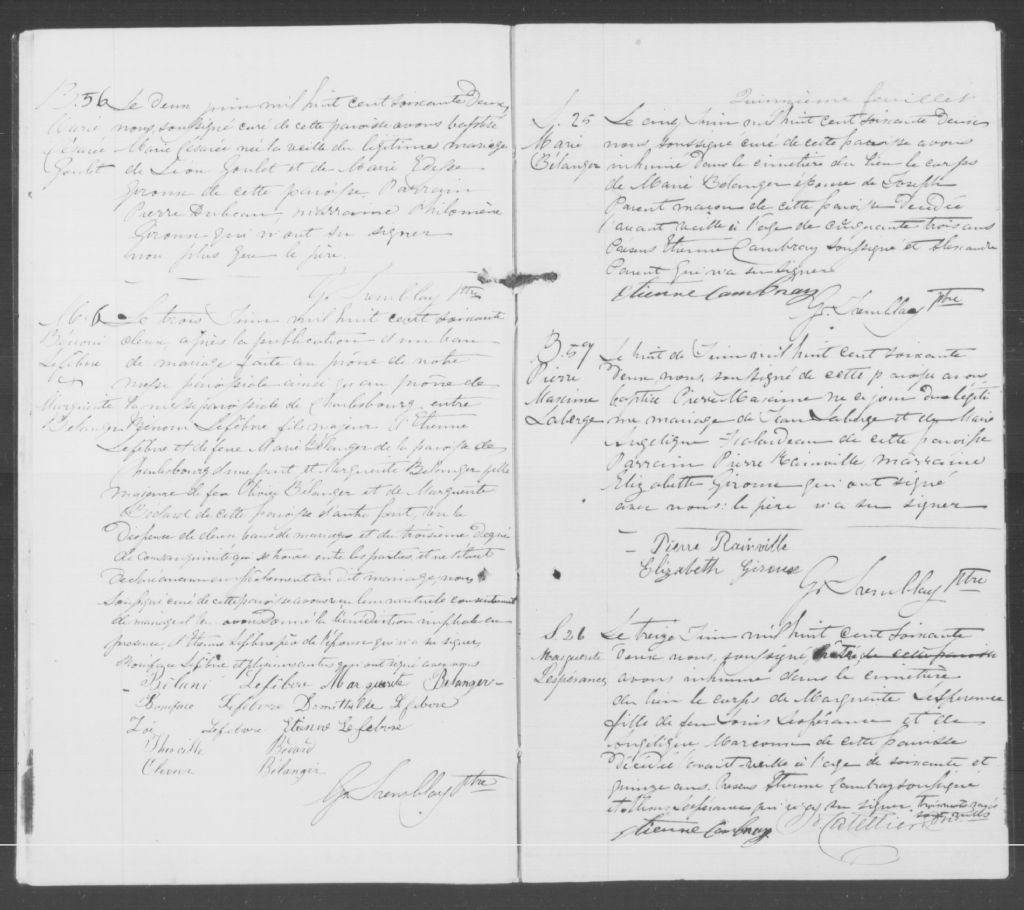 B. 56
Marie
Césarée
Goulet
Le deux juin mil huit cent soixante Deux,
nous, soussigné curé de cette paroisse avons baptisé
Marie Césarée née la veille du légitime mariage
de Léon Goulet et de Marie
Giroux de cette paroisse. Parrain
Pierre Dubeau, marraine Philomène
Giroux qui n'ont su signer
non plus que le père.
Gr. Tremblay Ptre
M. 6
Bénoni
Lefebvre
&
Marguerite
Bélanger
Le trois Juin mil huit cent soixante
deux, après la publication d'un ban
de mariage faite au prône de notre
messe paroissiale ainsi qu'au prône de
la messe paroissiale de Charlesbourg, entre
Bénoni Lefebvre fils majeur d'Etienne
Lefebvre et de feue Marie Bélanger de la paroisse de
Charlesbourg d'une part et Marguerite Bélanger fille
majeure de feu Olivier Bélanger et de Marguerite
Bédard de cette paroisse d'autre part, vu la
Dispense de deux bans de mariage et du troisième Degré
de consanguinité qui se trouve entre les parties et ne s'étant
découvert aucun empêchement au dit mariage, nous
soussigné curé de cette paroisse avons reçu leur mutuel consentement
de mariage et leur avons donné la bénédiction nuptiale en
presence d'Etienne Lefebvre père de l'époux qui n'a su signer,
Boniface Lefebvre et plusieurs autres qui ont signé avec nous
Bélani Lefèbvre Marguerite Bélanger
Boniface Lefebvre Domithilde Lefebvre
Zoé Lefebvre Etienne Lefebvre
Bédard
Olivier Bélanger
Gr. Tremblay Ptre
Quinzième feuillet
S. 25
Marie
Bélanger
Le cinq Juin mil huit cent soixante Deux
nous, soussigné curé de cette paroisse avons
inhumé dans le cimetière du lieu le corps
de Marie Bélanger épouse de Joseph
Parent maçon de cette paroisse Décédée
l'avant veille à l'age de cinquante trois ans
Présens Etienne Cambray soussigné et Alexandre
Parent qui n'a su signer
Etienne Cambray
Gr. Tremblay Ptre
B. 57
Pierre
Maxime
Laberge
Le huit de Juin mil huit cent soixante
Deux, nous, soussigné de cette paroisse avons
baptisé Pierre Maxime né ce jour du légiti
me mariage de Jean Laberge et de Marie
Angélique Falardeau de cette paroisse
Parrain Pierre Rainville, marraine
Elizabeth Giroux qui ont signé
avec nous: le père n'a su signer
Pierre Rainville
Elizabeth Giroux
Gr. Tremblay Ptre
S. 26
Marguerite
Lespérance
Le treize Juin mil huit cent soixante
Deux nous, soussigné, prêtre de cette paroisse
avons inhumé dans le cimetière
du lieu le corps de Marguerite Lespérance
fille de feu Louis Lespérance et de
Angélique Marcoux de cette paroisse
Décédée l'avant-veille à l'age de soixante et
quinze ans. Présens Etienne Cambray soussigné
et Lespérance qui n'a su signer. trois mots rayés
sont nuls
Etienne Cambray
Letellier Ptre